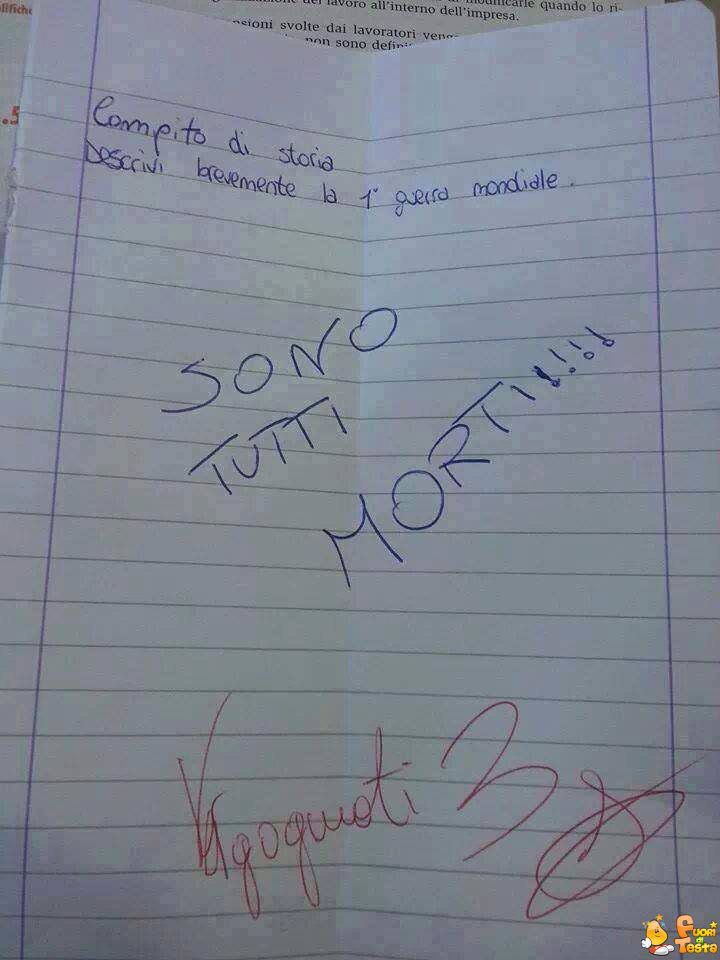 lavoro all'interno dell'impresa.
modificarle quando lo ri-
svolte dai lavoratori
non sono
.5
Compito di storia
Descrivi brevemente la 1° guerra mondiale.
SONO
TUTTI
MORTI!!!!
3
Fuori
di
Testa